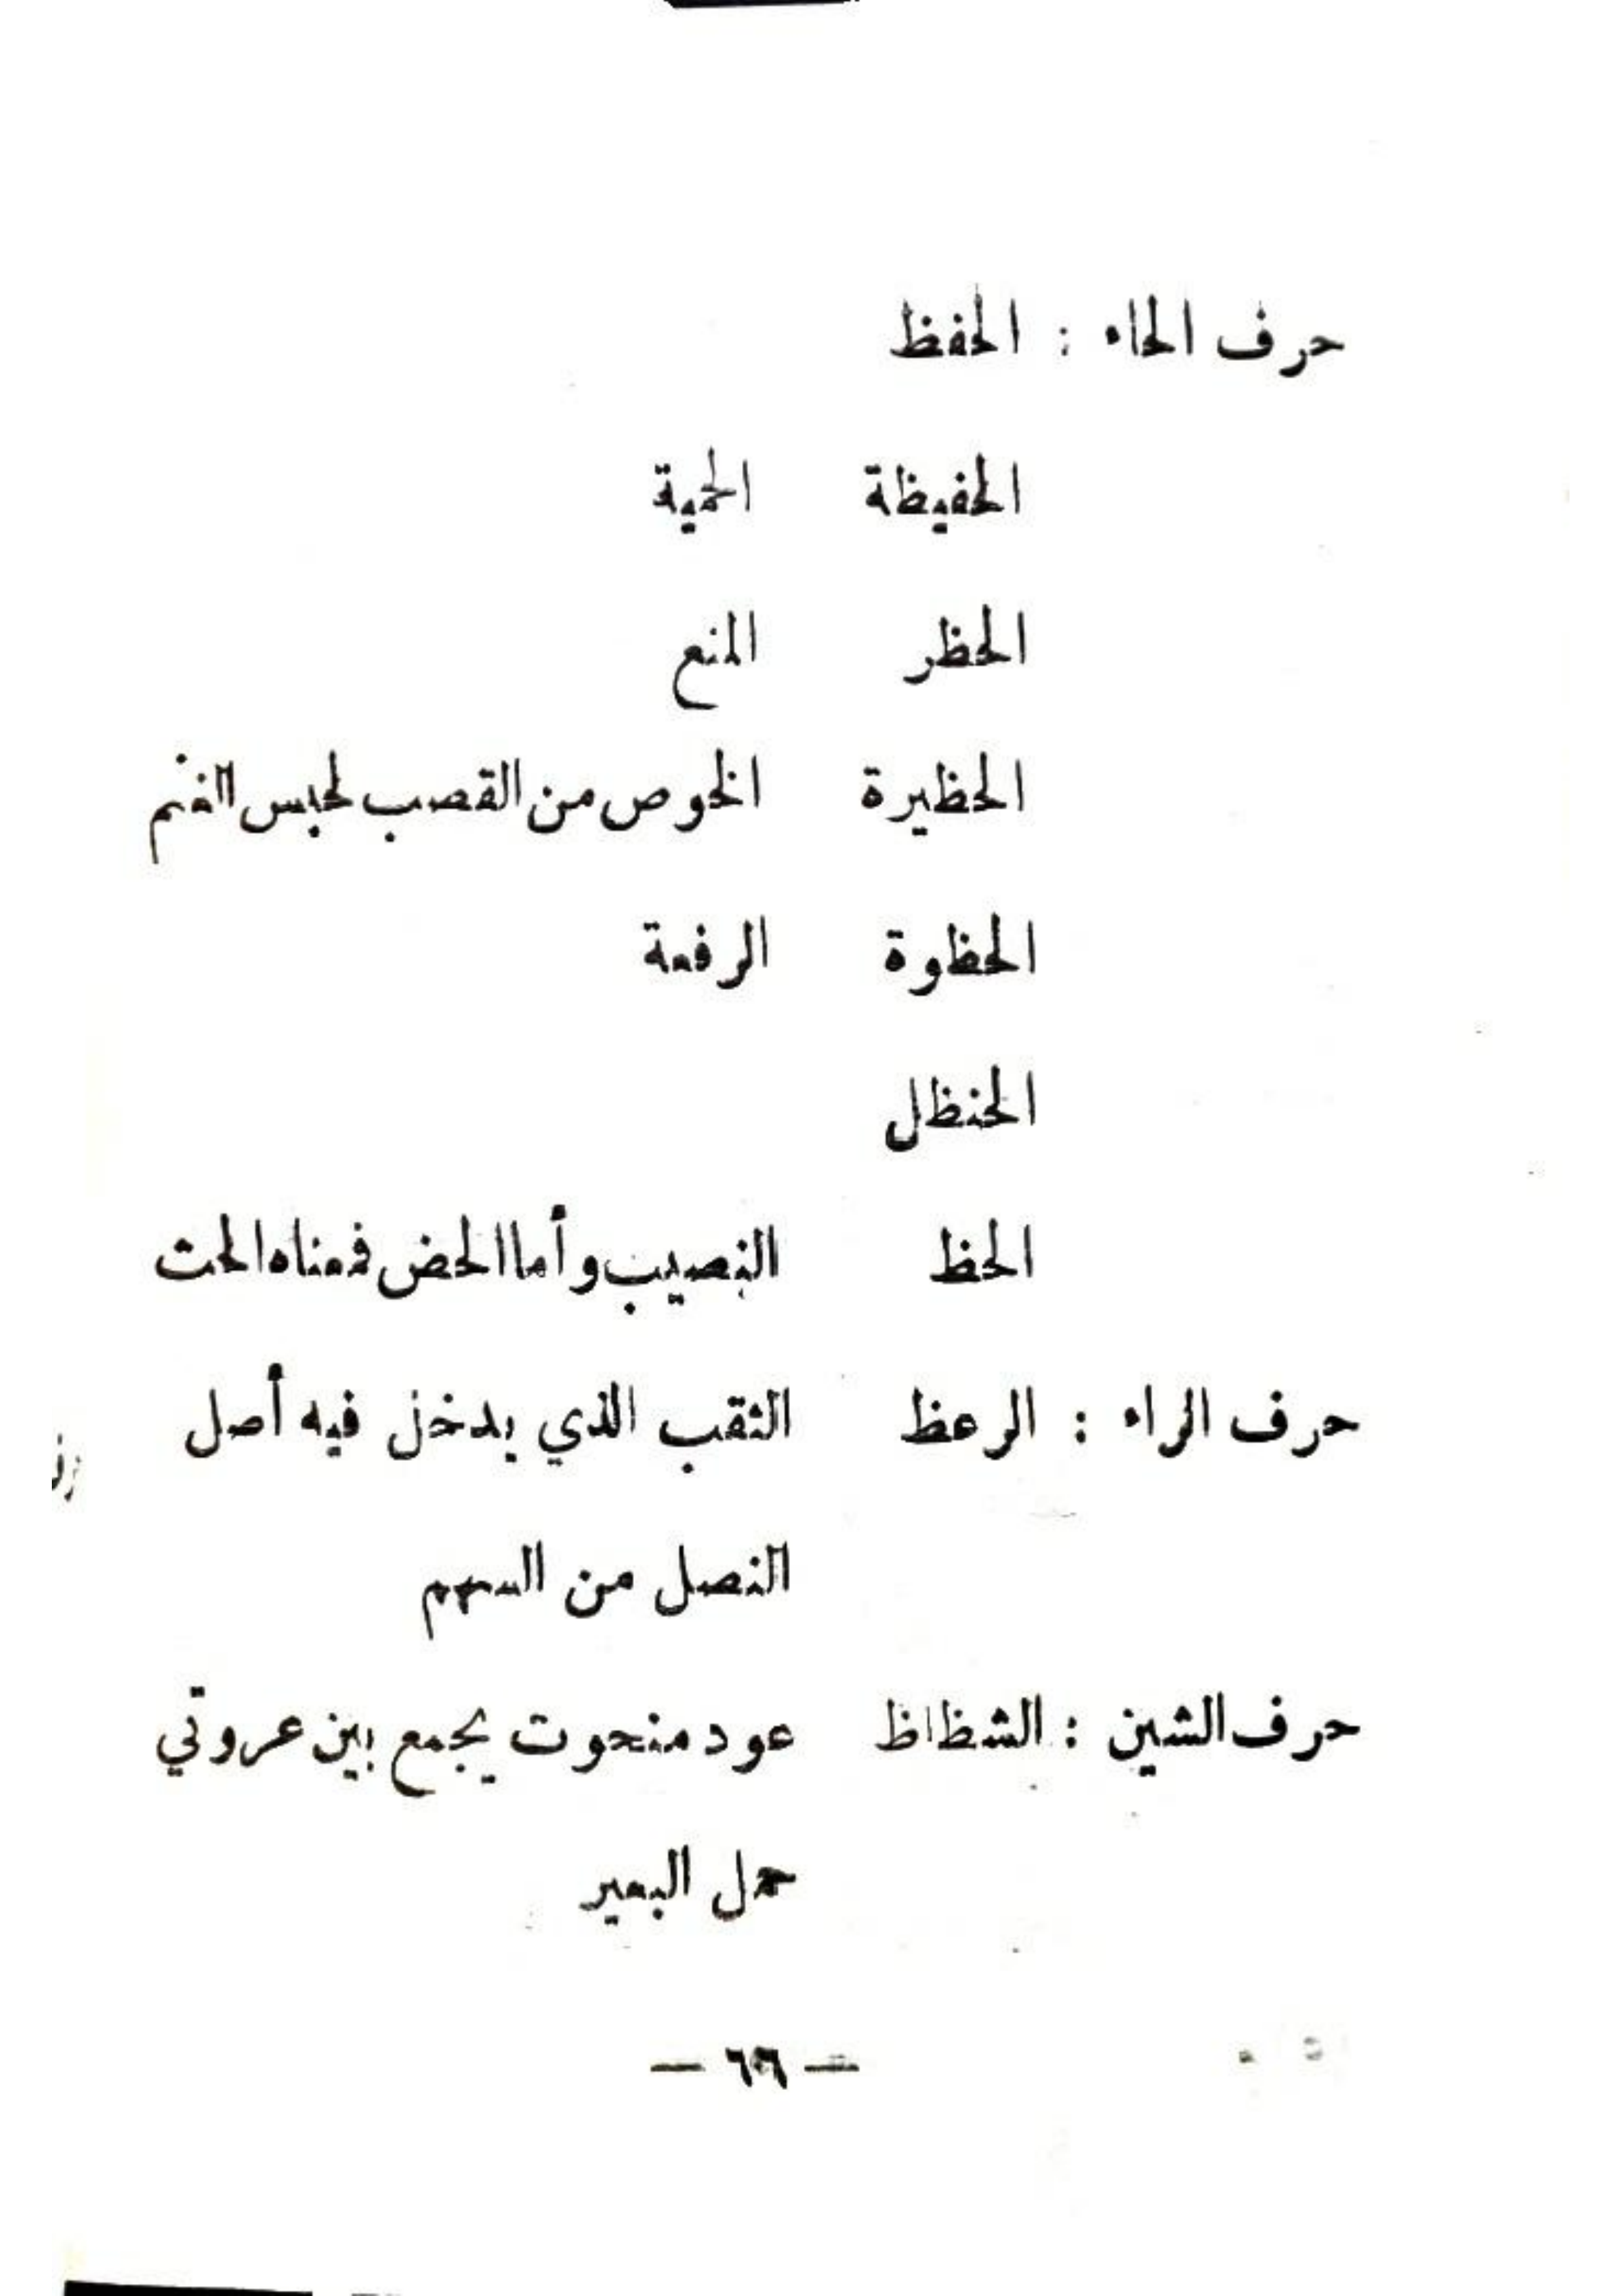 حرف الحاء : الحفظ
الحفيظة الحمية
الحظر المنع
الحظيرة الخوص من القصب لحبس الغنم
الحظوة الرفعة
الحنظل
الحظ النصيب وأما الحض فمعناه الحث
حرف الراء : الرعظ الثقب الذي يدخل فيه أصل
النصل من السهم
حرف الشين : الشظاظ عود منحوت يجمع بين عروتي
حمل البعير
— ٦٦ —